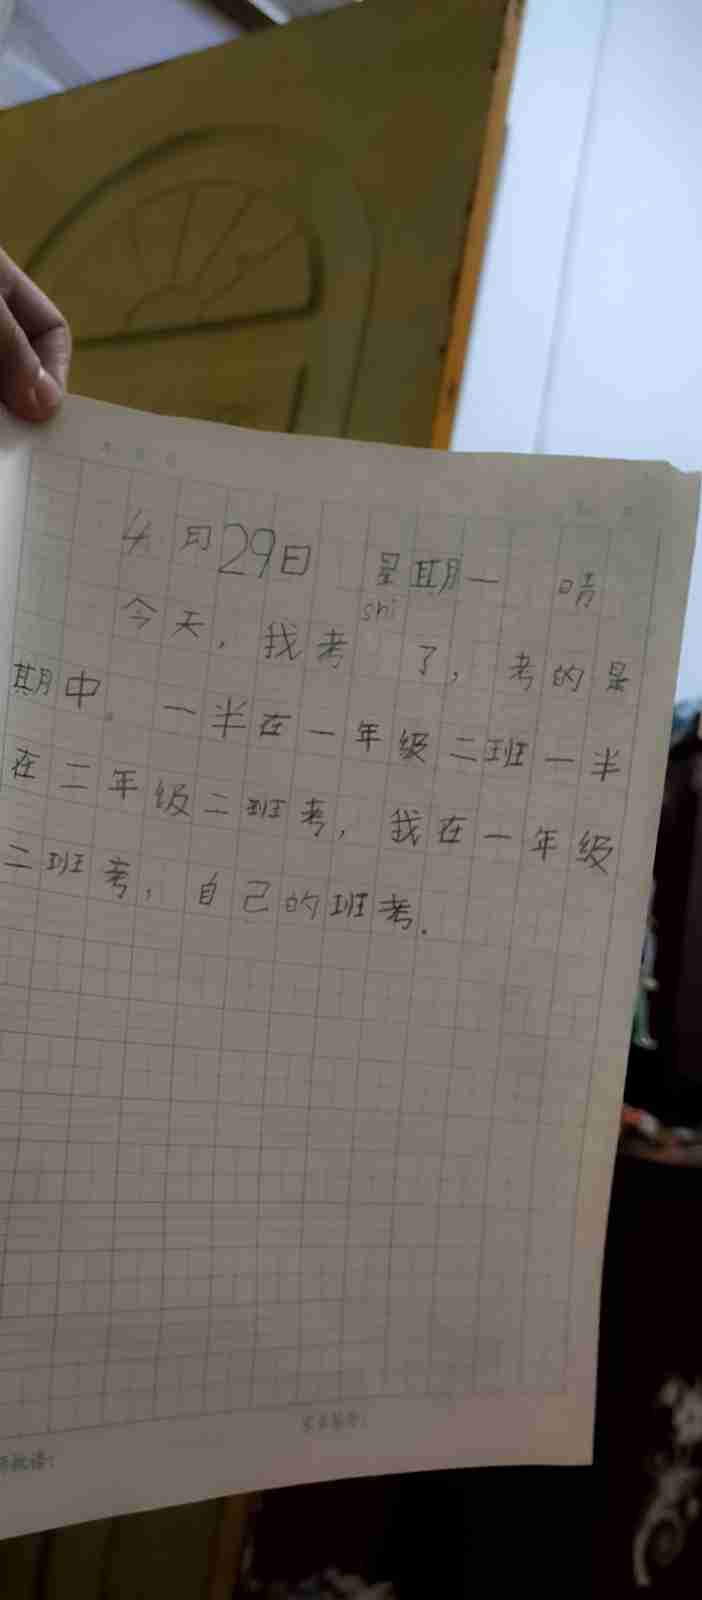 4月29日 星期一 晴
今天，我考shi了，考的是
期中。一半在一年级二班一半
在二年级二班考，我在一年级
二班考，自己的班考.